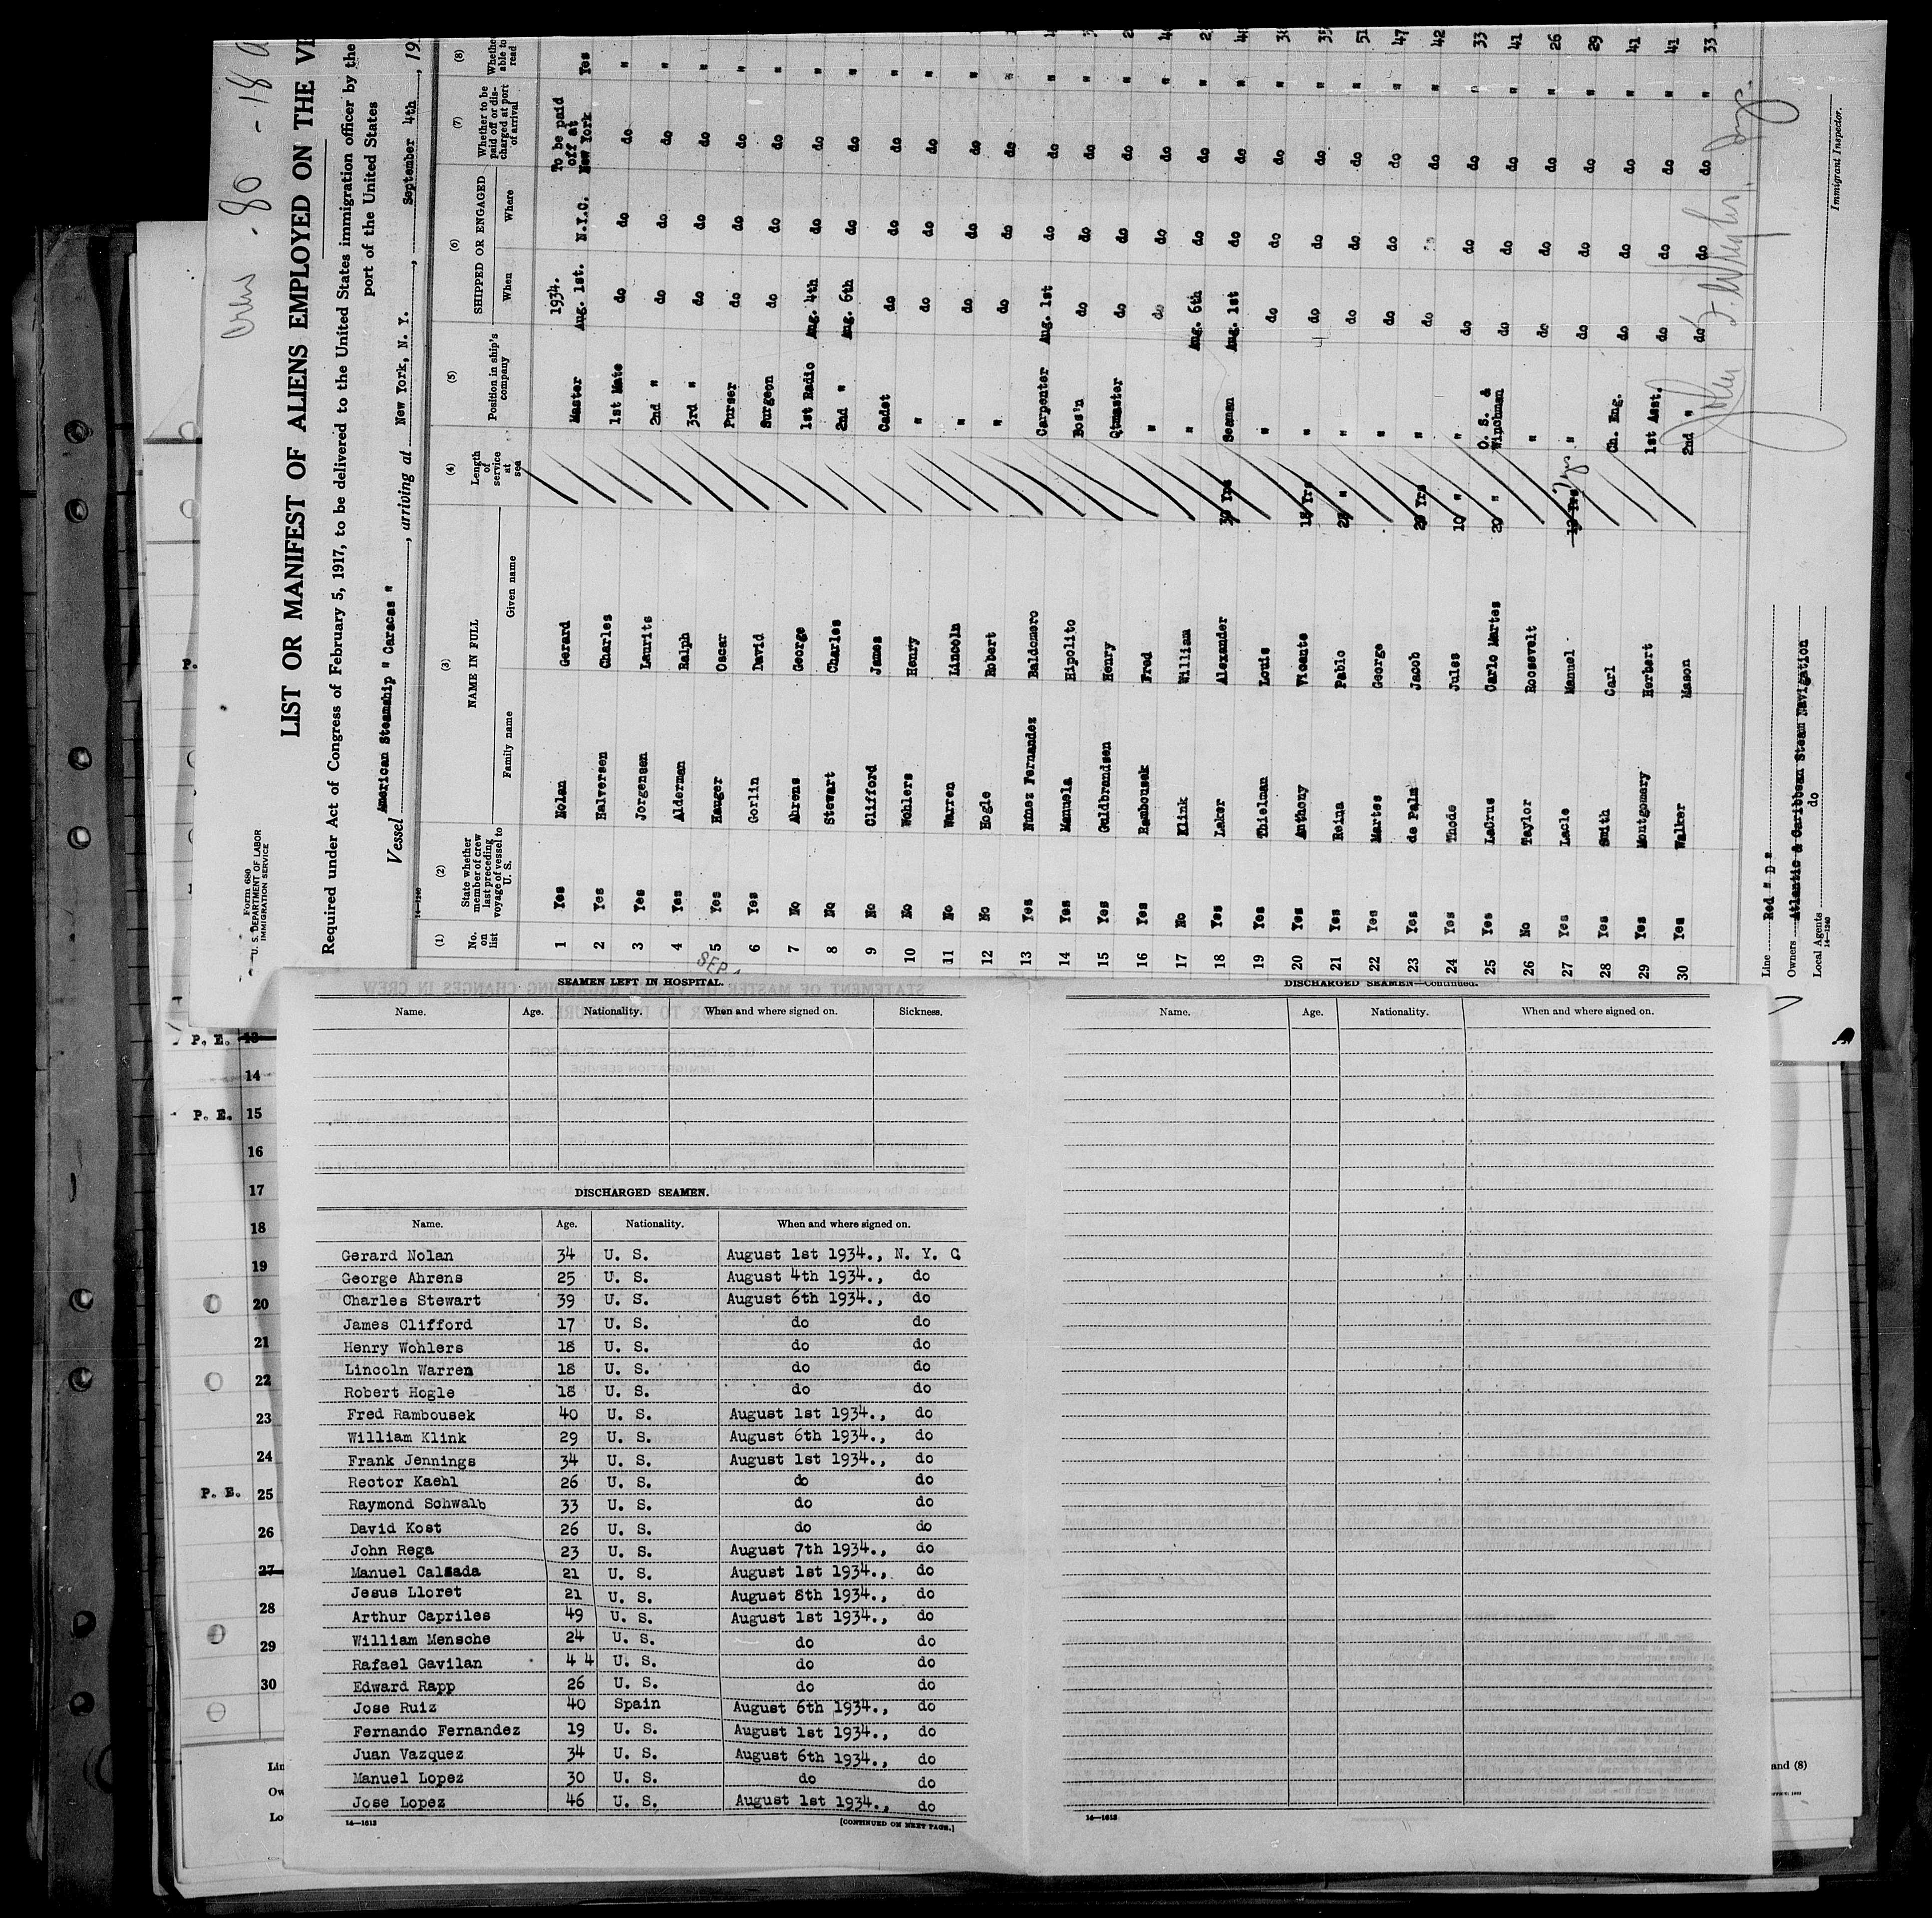 80 - 18
Form 680
U. S. DEPARTMENT OF LABOR
IMMIGRATION SERVICE
LIST OR MANIFEST OF ALIENS EMPLOYED ON THE
Required under Act of Congress of February 5, 1917, to be delivered to the United States immigration officer by the
port of the United States
Vessel American Steamship " Caracas ", arriving at New York, N. Y., September 4th, 19
14-1240
(1) (2) (3) (4) (5) (6) (7) (8)
No. on list State whether member of crew last preceding voyage of vessel to U. S. NAME IN FULL Length of service at sea Position in ship's company SHIPPED OR ENGAGED Whether to be paid off or discharged at port of arrival Whether able to read
Family name Given name When Where
1 Yes Nolan Gerard Master 1934. Aug. 1st. N.Y.C. To be paid off at New York Yes
2 Yes Halversen Charles 1st Mate do do do "
3 Yes Jorgensen Laurits 2nd " do do do "
4 Yes Alderman Ralph 3rd " do do do "
5 Yes Hauger Oscar Purser do do do "
6 Yes Gorlin David Surgeon do do do "
7 No Ahrens George 1st Radio Aug. 4th do do "
8 No Stewart Charles 2nd " Aug. 6th do do "
9 No Clifford James Cadet do do do "
10 No Wohlers Henry " do do do "
11 No Warren Lincoln " do do do "
12 No Hogle Robert " do do do "
13 Yes Nunez Fernandez Baldomero Carpenter Aug. 1st do do "
14 Yes Manuela Hipolito Bos'n do do do "
15 Yes Guldbrandsen Henry Qtmaster do do do "
16 Yes Rambousek Fred " do do do "
17 No Klink William " Aug. 6th do do "
18 Yes Laker Alexander 30 Yrs Seaman Aug. 1st do do "
19 Yes Thielman Louis " do do do "
20 Yes Anthony Vicente 18 Yrs " do do do " 35
21 Yes Reina Pablo 25 " " do do do " 51
22 Yes Martes George " do do do " 47
23 Yes de Palm Jacob 20 Yrs " do do do " 42
24 Yes Thode Julss 10 " " do do do " 33
25 Yes LaCrus Carlo Martes 20 " O. S. & Winchman do do do " 41
26 No Taylor Roosevelt " do do do " 26
27 Yes Lacle Manuel 7 yrs " do do do " 29
28 Yes Smith Carl Ch. Eng. do do do " 41
29 Yes Montgomery Herbert 1st Asst. do do do " 41
30 Yes Walker Mason 2nd " do do do " 33
Line Red " D "
Owners Atlantic & Caribbean Steam Navigation
Local Agents do
14-1240
Immigrant Inspector.
SEP
P. E. 13
14
P. E. 15
16
17
18
19
20
21
22
23
24
P. E. 25
26
27
28
29
30
Lin
Ow
Lo
and (8)
SEAMEN LEFT IN HOSPITAL.
Name. Age. Nationality. When and where signed on. Sickness.
DISCHARGED SEAMEN.
Name. Age. Nationality. When and where signed on.
Gerard Nolan 34 U. S. August 1st 1934., N. Y. C
George Ahrens 25 U. S. August 4th 1934., do
Charles Stewart 39 U. S. August 6th 1934., do
James Clifford 17 U. S. do do
Henry Wohlers 18 U. S. do do
Lincoln Warren 18 U. S. do do
Robert Hogle 18 U. S. do do
Fred Rambousek 40 U. S. August 1st 1934., do
William Klink 29 U. S. August 6th 1934., do
Frank Jennings 34 U. S. August 1st 1934., do
Rector Kaehl 26 U. S. do do
Raymond Schwalb 33 U. S. do do
David Kost 26 U. S. do do
John Rega 23 U. S. August 7th 1934., do
Manuel Calzada 21 U. S. August 1st 1934., do
Jesus Lloret 21 U. S. August 8th 1934., do
Arthur Capriles 49 U. S. August 1st 1934., do
William Mensche 24 U. S. do do
Rafael Gavilan 4 4 U. S. do do
Edward Rapp 26 U. S. do do
Jose Ruiz 40 Spain August 6th 1934., do
Fernando Fernandez 19 U. S. August 1st 1934., do
Juan Vazquez 34 U. S. August 6th 1934., do
Manuel Lopez 30 U. S. do do
Jose Lopez 46 U. S. August 1st 1934., do
14-1613 [CONTINUED ON NEXT PAGE.]
DISCHARGED SEAMEN—Continued.
Name. Age. Nationality. When and where signed on.
14-1613